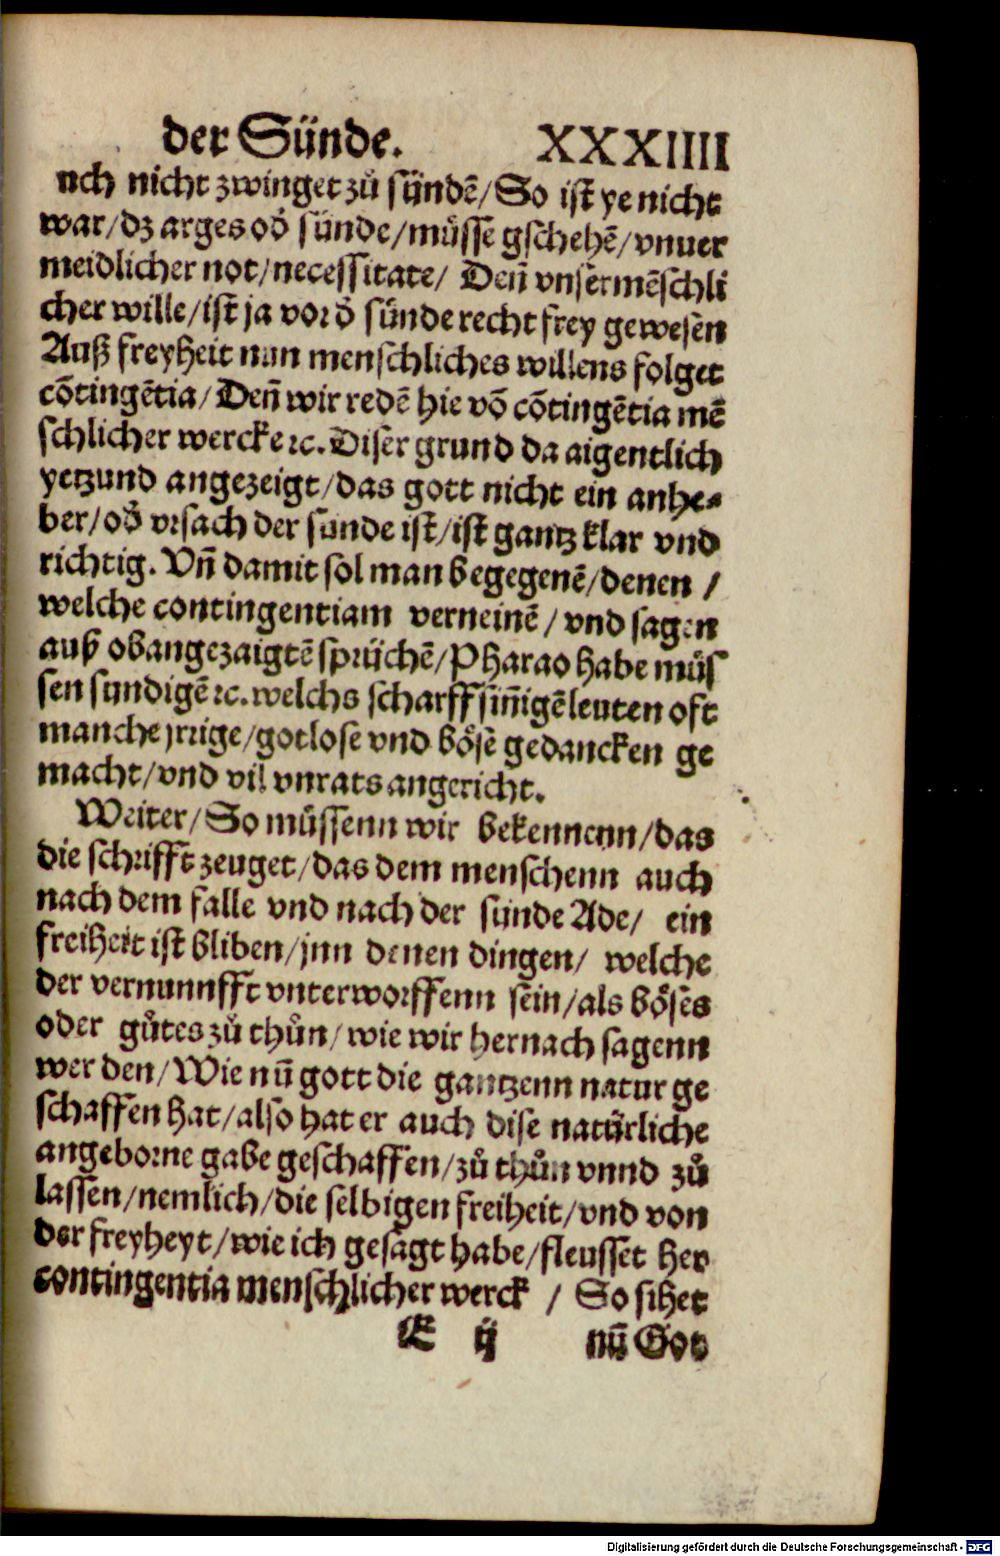 der Sünde. XXXIIII
uch nicht zwinget zů sündẽ/So ist ye nicht
war/dz arges oð sünde/müssẽ gschehẽ/vnuer
meidlicher not/necessitate/ Deñ vnser mẽschli
cher wille/ist ja vor ð sünde recht frey gewesen
Auß freyheit nun menschliches willens folget
cõtingẽtia/Deñ wir redẽ hie võ cõtingẽtia mẽ
schlicher wercke ꝛc. Diser grund da aigentlich
yetzund angezeigt/das gott nicht ein anhe⸗
ber/oð vrsach der sünde ist/ist gantz klar vnd
richtig. Vñ damit sol man begegenẽ/denen /
welche contingentiam verneinẽ/ vnd sagen
auß obangezaigtẽ sprüchẽ/Pharao habe müs
sen sundigẽ ꝛc. welchs scharffsiñigẽ leuten oft
manche jrrige/gotlose vnd böse gedancken ge
macht/vnd vil vnrats angericht.
Weiter/So müssenn wir bekennenn/das
die schrifft zeuget/das dem menschenn auch
nach dem falle vnd nach der sünde Ade/ ein
freiheit ist bliben/jnn denen dingen/ welche
der vernunnfft vnterworffenn sein/als böses
oder gůtes zů thůn/wie wir hernach sagenn
wer den/Wie nũ gott die gantzenn natur ge
schaffen hat/also hat er auch dise natürliche
angeborne gabe geschaffen/zů thůn vnnd zů
lassen/nemlich/die selbigen freiheit/vnd von
der freyheyt/wie ich gesagt habe/fleusset her
contingentia menschlicher werck / So sihet
E ij nũ Got
Digitalisierung gefördert durch die Deutsche Forschungsgemeinschaft - DFG